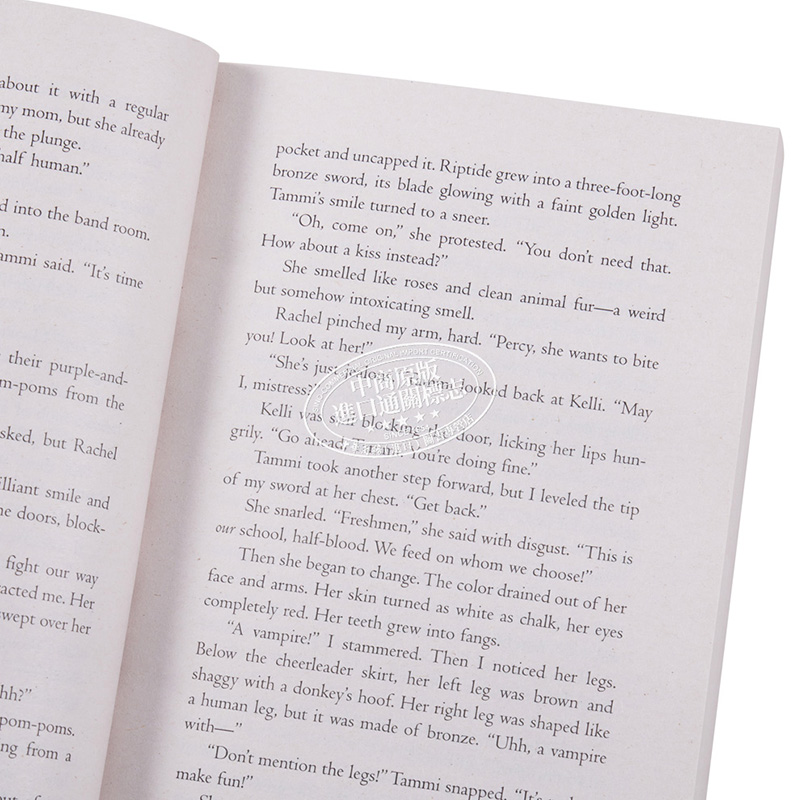 about it with a regular
my mom, but she already
the plunge.
half human."
d into the band room.
n.
ammi said. "It's time
their purple-and-
m-poms from the
sked, but Rachel
illiant smile and
ne doors, block-
fight our way
racted me. Her
swept over her
hh?"
pom-poms.
ng from a
pocket and uncapped it. Riptide grew into a three-foot-long
bronze sword, its blade glowing with a faint golden light.
Tammi's smile turned to a sneer.
"Oh, come on," she protested. "You don't need that.
How about a kiss instead?"
She smelled like roses and clean animal fur—a weird
but somehow intoxicating smell.
Rachel pinched my arm, hard. "Percy, she wants to bite
you! Look at her!"
"She's just jealous." Tammi looked back at Kelli. "May
I, mistress?"
Kelli was still blocking the door, licking her lips hun-
grily. "Go ahead, Tammi. You're doing fine."
Tammi took another step forward, but I leveled the tip
of my sword at her chest. "Get back."
She snarled. "Freshmen," she said with disgust. "This is
our school, half-blood. We feed on whom we choose!"
Then she began to change. The color drained out of her
face and arms. Her skin turned as white as chalk, her eyes
completely red. Her teeth grew into fangs.
"A vampire!" I stammered. Then I noticed her legs.
Below the cheerleader skirt, her left leg was brown and
shaggy with a donkey's hoof. Her right leg was shaped like
a human leg, but it was made of bronze. "Uhh, a vampire
with—"
"Don't mention the legs!" Tammi snapped. "It's
make fun!"
She
中商原版
進口通關標志